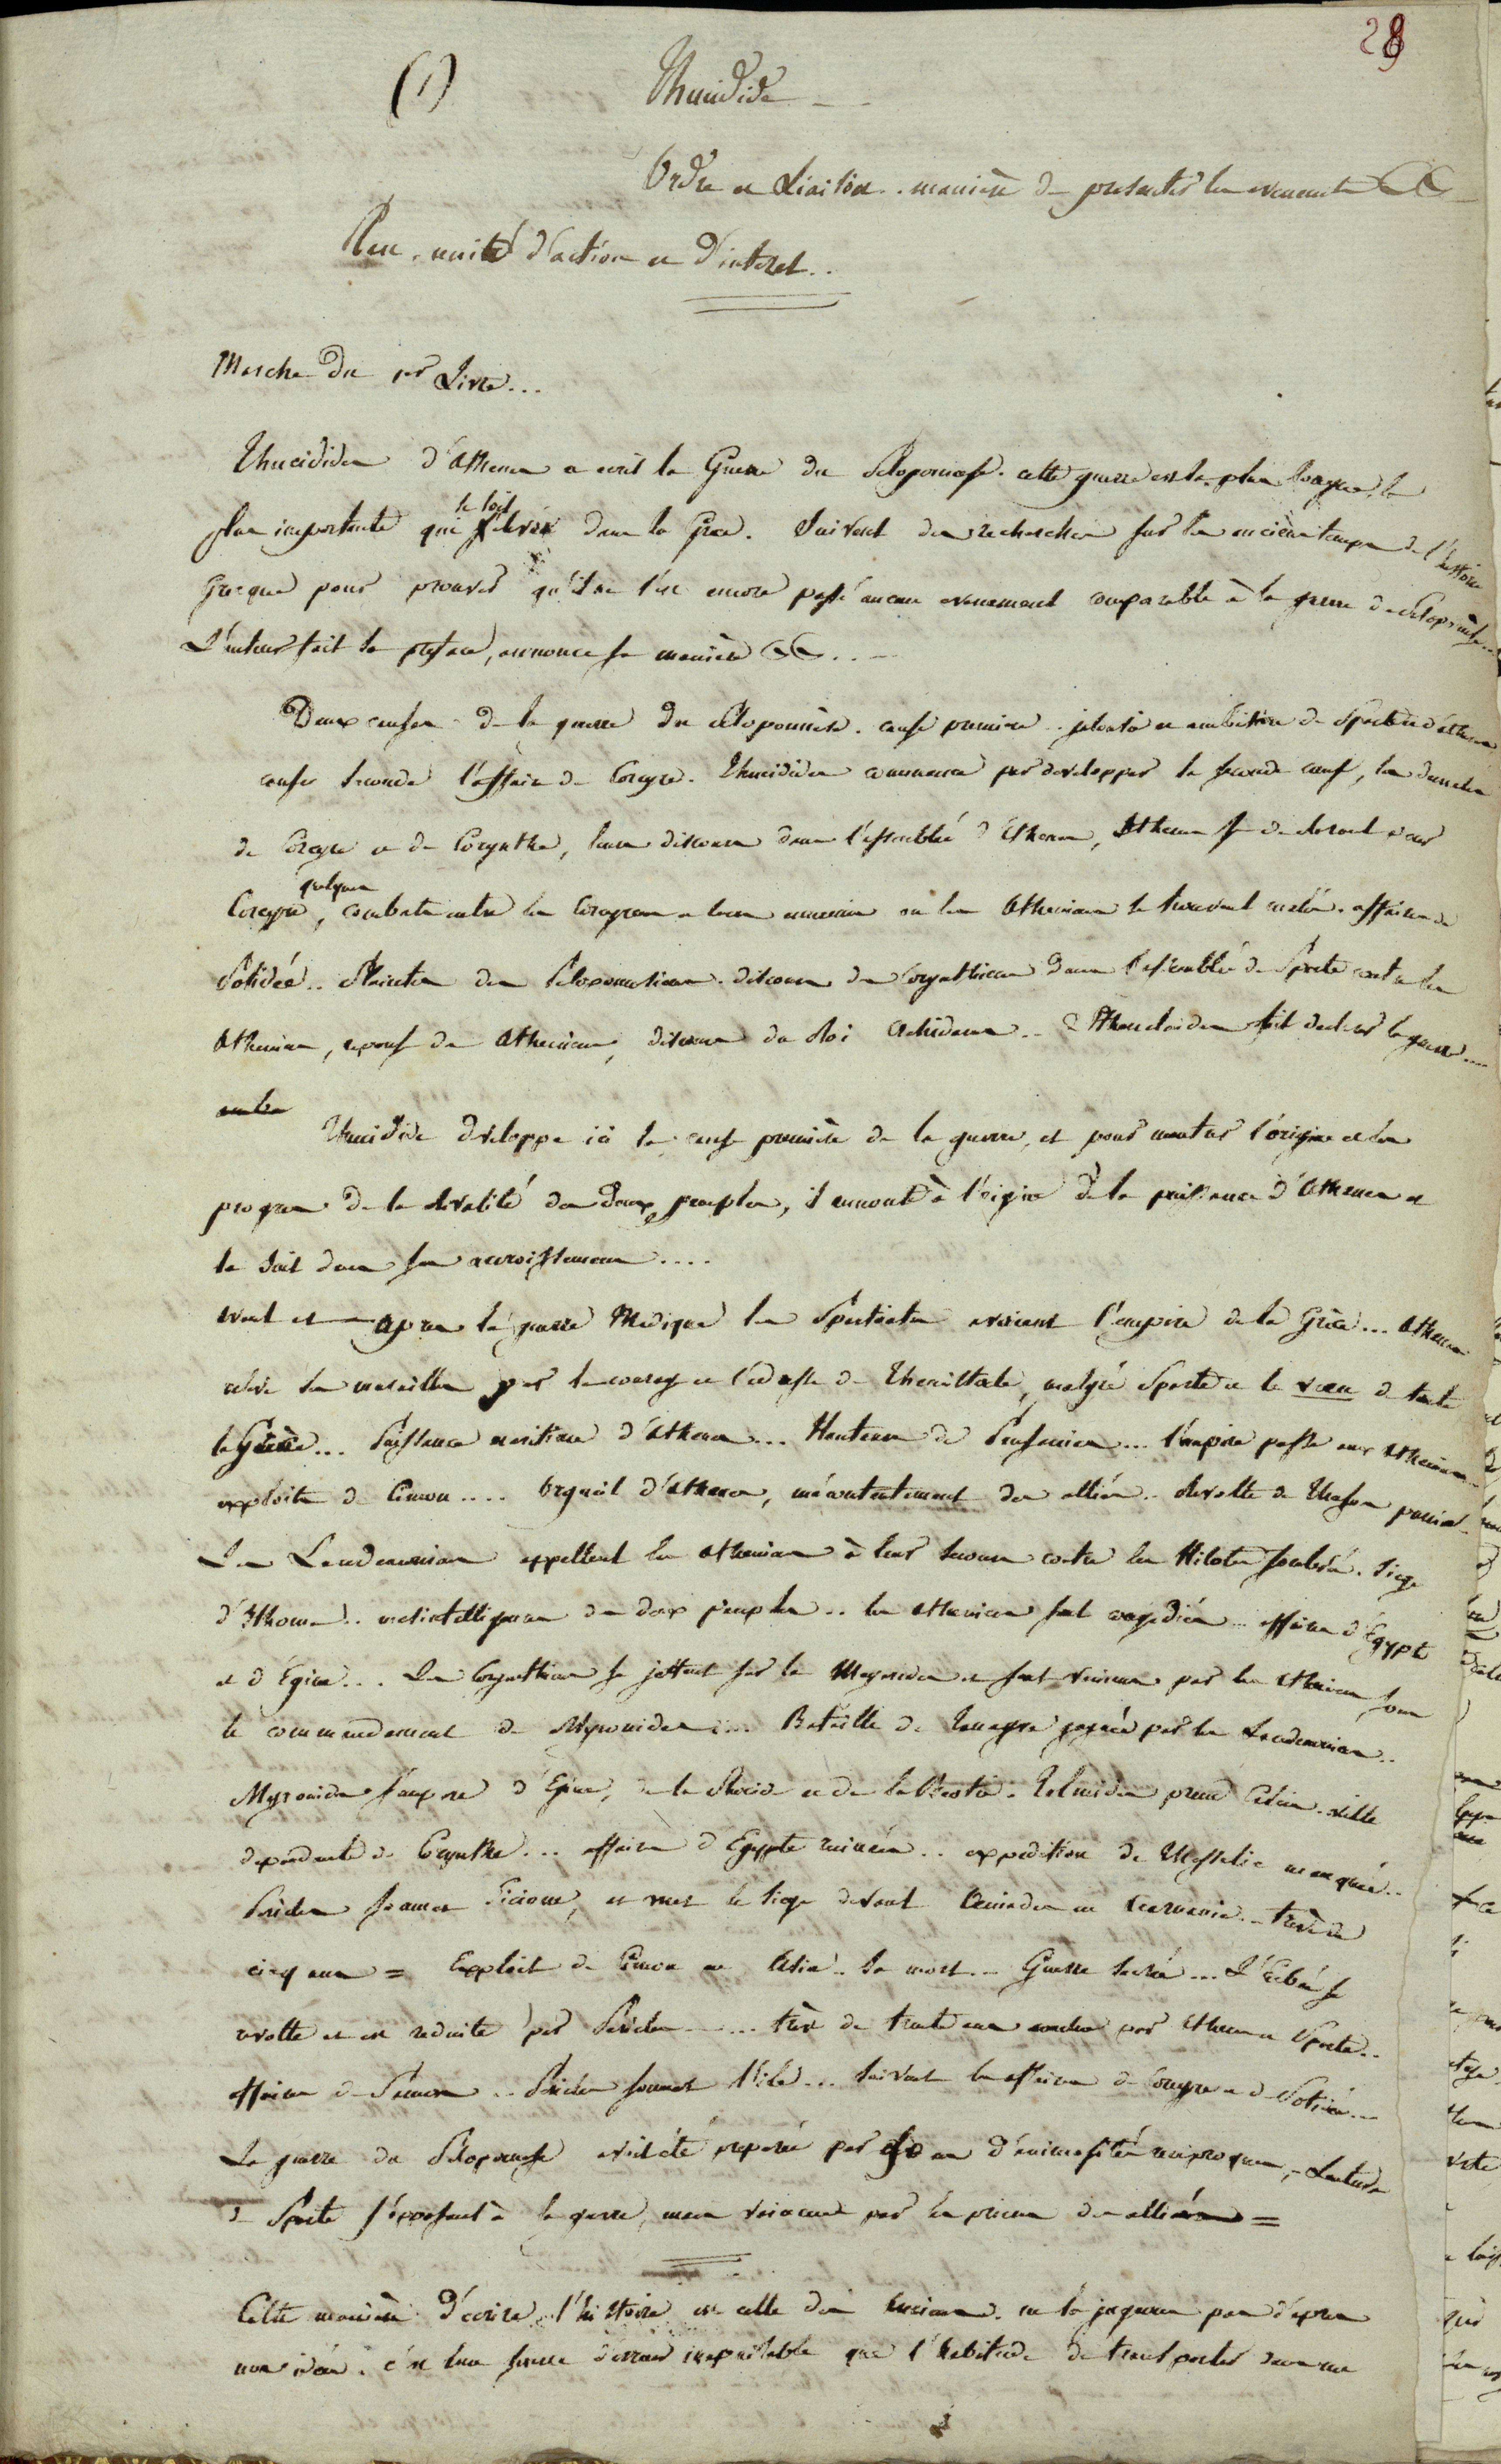 28
(1)
Thucidide
Ordre et Liaison.. manière de presenter les evenements &&
Plan, unité d'action et d'interet..
Marche du 1er Livre...
Thucidides d'Athenes a ecrit la Guerre du Peloponese. cette guerre est la plus longue, la
plus importante qui se soit dans la Grece. Suivent des recherches sur les anciens temps de l'histoire
Grecque pour prouver qu'il ne s'est encore passé aucun evenement comparable à la guerre du Peloponèse...
L'auteur fait sa preface, annonce sa manière &&...
Deux causes de la guerre du Peloponnèse. cause premiere.. jalousie et ambition de Sparte et d'Athenes
cause seconde l'affaire de Corcyre. Thucidides commence par developper la seconde cause, les demeles
de Corcyre et de Corynthe, leurs discours dans l'assemblée d'Athenes, Athenes se declarent pour
Corcyre, quelques combats entre les Corcyreens et leurs ennemis ou les Atheniens se trouvent melés. affaires de
Potidée.. Plaintes des Peloponesiens. discours des Corynthiens dans l'assemblée de Sparte contre les
Atheniens, reponse des Atheniens, discours du Roi Archidamus.. Sthenelaides fait declarer la guerre....
Thucidide developpe ici la cause première de la guerre, et pour montrer l'origine et les
progres de la rivalité des deux peuples, il remonte à l'origine de la puissance d'Athenes et
la suit dans ses accroissemens....
avant et apres la guerre Medique les Spartiates avoient l'empire de la Grèce... Athenes
releve ses murailles par le courage et l'adresse de Themistocle, malgré Sparte et le vœu de toute
la Grèce... Puissance maritime d'Athenes... Hauteurs de Pausanias... l'empire passe aux Atheniens..
exploits de Cimon.... Orgueil d'Athenes, mécontentement des alliés.. revolte de Thasos punie..
Les Lacedemoniens appellent les Atheniens à leur secours contre les Hilotes soulevés. siege
d'Ithome.. mesintelligence des deux peuples.. les Atheniens sont congediés.. affaires d'Égypte
et d'Égine... Les Corynthiens se jettent sur la Megaride et sont vaincus par les Atheniens sous
le commandement de Myronides... Bataille de Tanagre gagnée par les Lacedemoniens..
Myronides s'empare d'Egine, de la Phocide et de la Béotie. Tolmides prend Calcis ville
dependante de Corynthe... affaires d'Egypte ruinées.. expedition de Thessalie manquée..
Pericles soumet Sicione, et met le siege devant Oeniades en Acarnanie.. trève de
cinq ans = Exploits de Cimon en Asie.. sa mort.. Guerre sacrée... L'Eubée se
revolte et est reduite par Pericles..... trève de trente ans conclue par Athenes et Sparte..
affaires de Samos.. Pericles soumet l'ile... Suivent les affaires de Corcyre et de Potidée...
La guerre du Peloponese avoit été preparée par 50 ans d'animosités reciproques, - Lenteurs
de Sparte s'opposant à la guerre, mais vaincue par les prieres des alliés =
Cette manière d'ecrire l'histoire est celle des anciens. ne la jugeons pas d'apres
nos idées. c'est une source d'erreurs inepuisable que l'habitude de transporter dans une